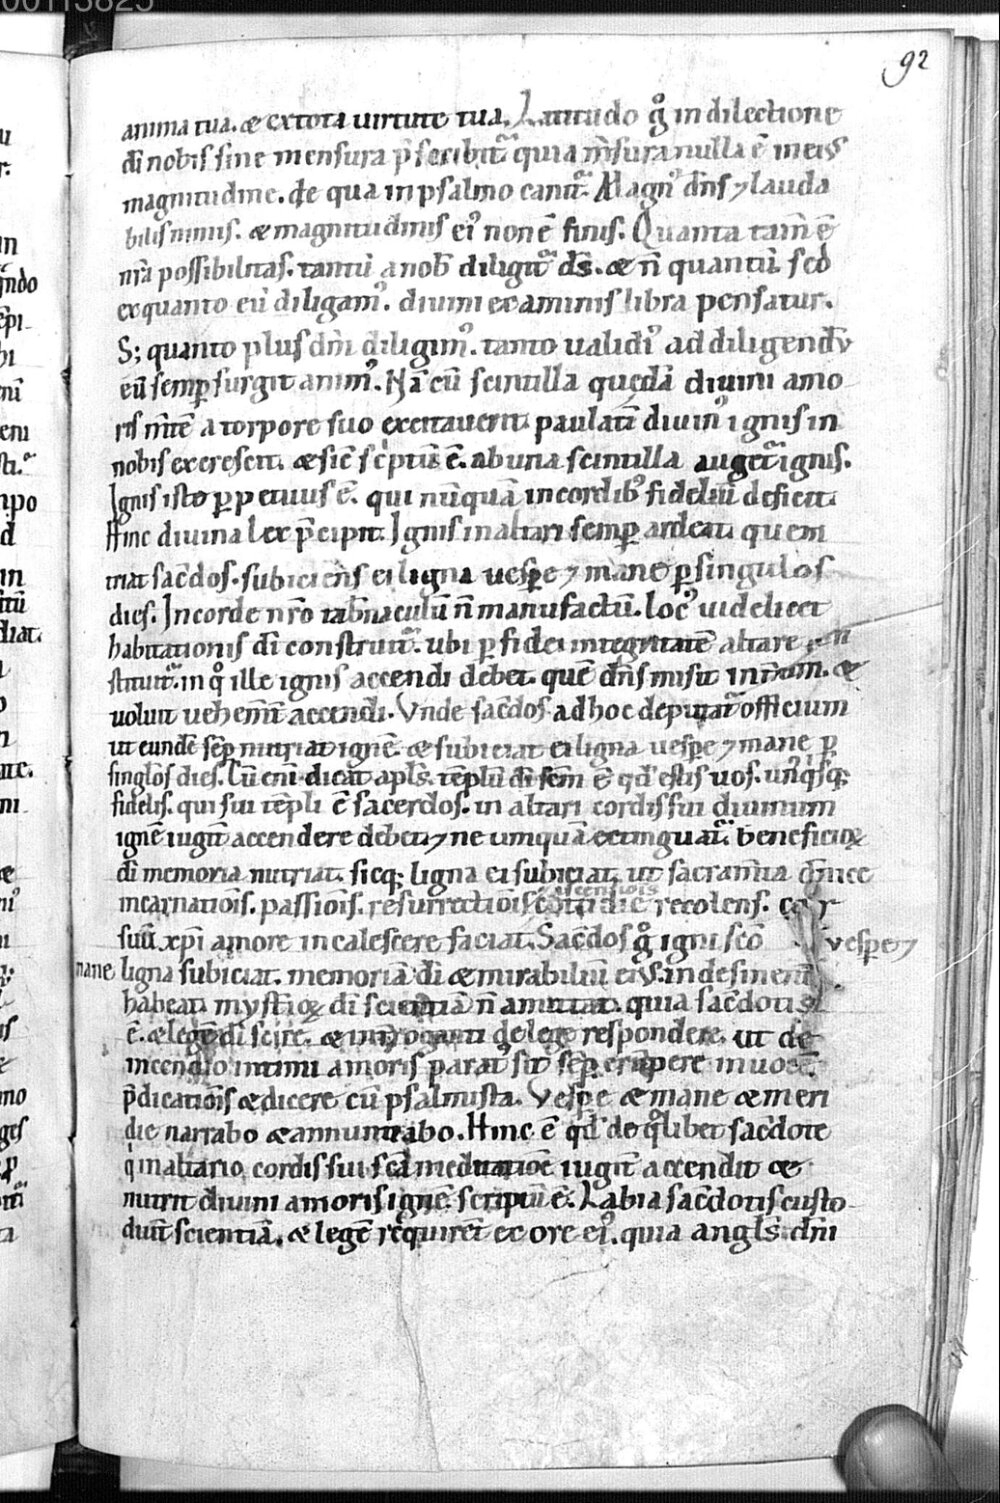 00113825
92
anima tua. & ex tota uirtute tua. Latitudo g̊ in dilectione
dī nobis sine mensura p̄scribit᷑ quia m̄sura nulla ē in eiꝰ
magnitudine. de qua in psalmo canit᷑. Magnꝰ dn̄s ⁊ lauda
bilis nimis. & magnitudinis eiꝰ non ē finis. Quanta tam̄ ē
nr̄a possibilitas. tantū a nob̄ diligit᷑ ds̄. & n̄ quantū. sed
ex quanto eū diligamꝰ. diuini examinis libra pensatur.
S; quanto plus dm̄ diligimꝰ. tanto ualidiꝰ ad diligendū
eū semꝑ surgit animꝰ. Nā cū scintilla quedā diuini amo
ris m̄tē a torpore suo excitauerit. paulatī diuinꝰ ignis in
nobis excrescit. & sic̄ sc̄ptū ē. ab una scintilla auget᷑ ignis.
Ignis iste ꝑpetuus ē. qui nūquā in cordibꝰ fideliū deficit.
Hinc diuina lex p̄cipit. Ignis in altari semꝑ ardeat. quem
triat sac̄dos. subiciēs ei ligna uesꝑe ⁊ mane ꝑ singulos
dies. In corde nr̄o tab̄naculū n̄ manufactū. locꝰ uidelicet
habitationis dī construit᷑. ubi ꝑ fidei integritatē altare con
stituit᷑. in qͦ ille ignis accendi debet. quē dn̄s misit in t̄ram. &
uoluit uehem̄t accendi. Vnde sac̄dos ad hoc deputat᷑ officium
ut eundē sēp nutriat ignē. & subiciat ei ligna uesꝑe ⁊ mane ꝑ
singlōs dies. Cū enī dicat apl̄s. tēplū dī sc̄m ē qd̄ estis uos. unꝰqisq;
fidelis. qui sui tēpli ē sacerdos. in altari cordis sui diuinum
ignē iugit̄ accendere debet. ⁊ ne umquā extinguat᷑. beneficioꝝ
dī memoria nutriat. sicq; ligna ei subiciat. ut sacram̄ta dn̄ice
ascensiois
incarnatiōis. passiōis. resurrectiōis cottidie recolens. cor
suū xp̄i amore incalescere faciat. Sac̄dos g̊ igni sc̄o uesꝑe ⁊
mane ligna subiciat. memoriā dī & mirabiliū eiꝰ. indesinent̄
habeat. mystioꝝ dī scientiā n̄ amittat. quia sac̄dotis
ē. & legē dī scire. & int̄roganti de lege respondere. ut de
incendio intimi amoris paratꝰ sit sēp erūpere in uocē
p̄dicatiōis & dicere cū psalmista. Vesꝑe & mane & meri
die narrabo & annuntiabo. Hinc ē qd̄ de qͦlibet sac̄dote
qⁱ in altario cordis sui sc̄a meditatiōe iugit̄ accendit &
nutrit diuini amoris ignē. scriptū ē. Labia sac̄dotis custo
diunt̄ scientiā. & legē requirēt ex ore eiꝰ. quia angl̄s dn̄i